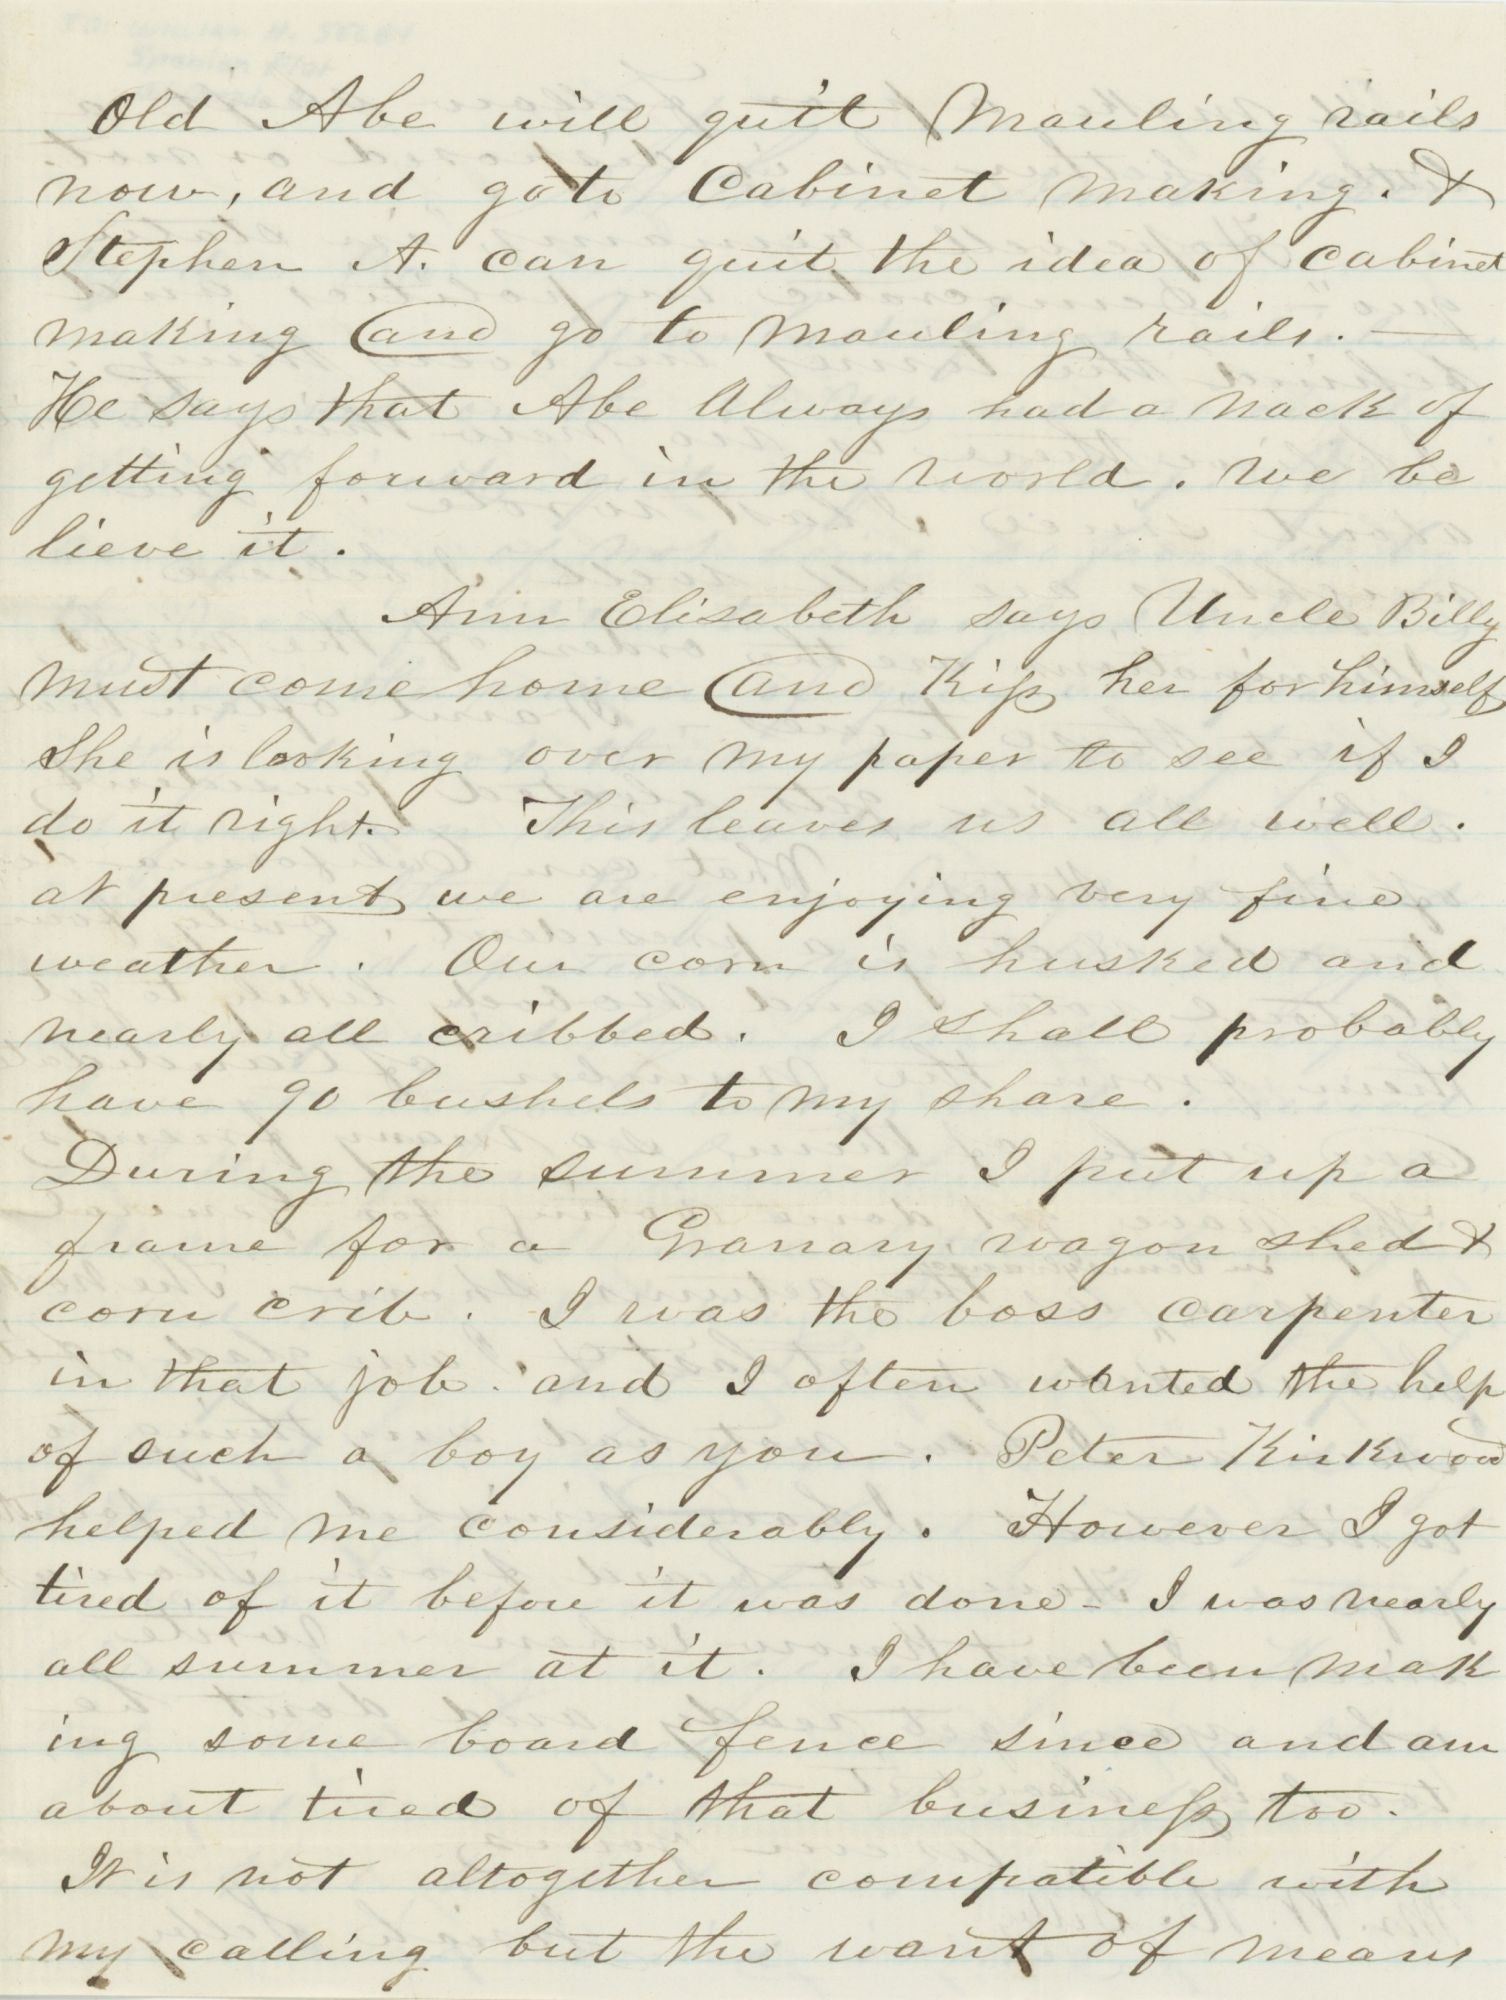 Old Abe will quit Mauling rails
now, and go to Cabinet Making. &
Stephen A. can quit the idea of cabinet
making and go to Mauling rails. —
He says that Abe Always had a nack of
getting forward in the world. We be
lieve it.
Ann Elisabeth says Uncle Billy
must come home and Kiss her for himself
She is looking over my paper to see if I
do it right. This leaves us all well.
at present we are enjoying very fine
weather. Our corn is husked and
nearly all cribbed. I shall probably
have 90 bushels to my share.
During the summer I put up a
frame for a Granary wagon shed &
corn crib. I was the boss carpenter
in that job. and I often wanted the help
of such a boy as you. Peter Kirkwood
helped me considerably. However I got
tired of it before it was done - I was nearly
all summer at it. I have been mak
ing some board fence since and am
about tired of that business too.
It is not altogether compatible with
my calling but the want of means